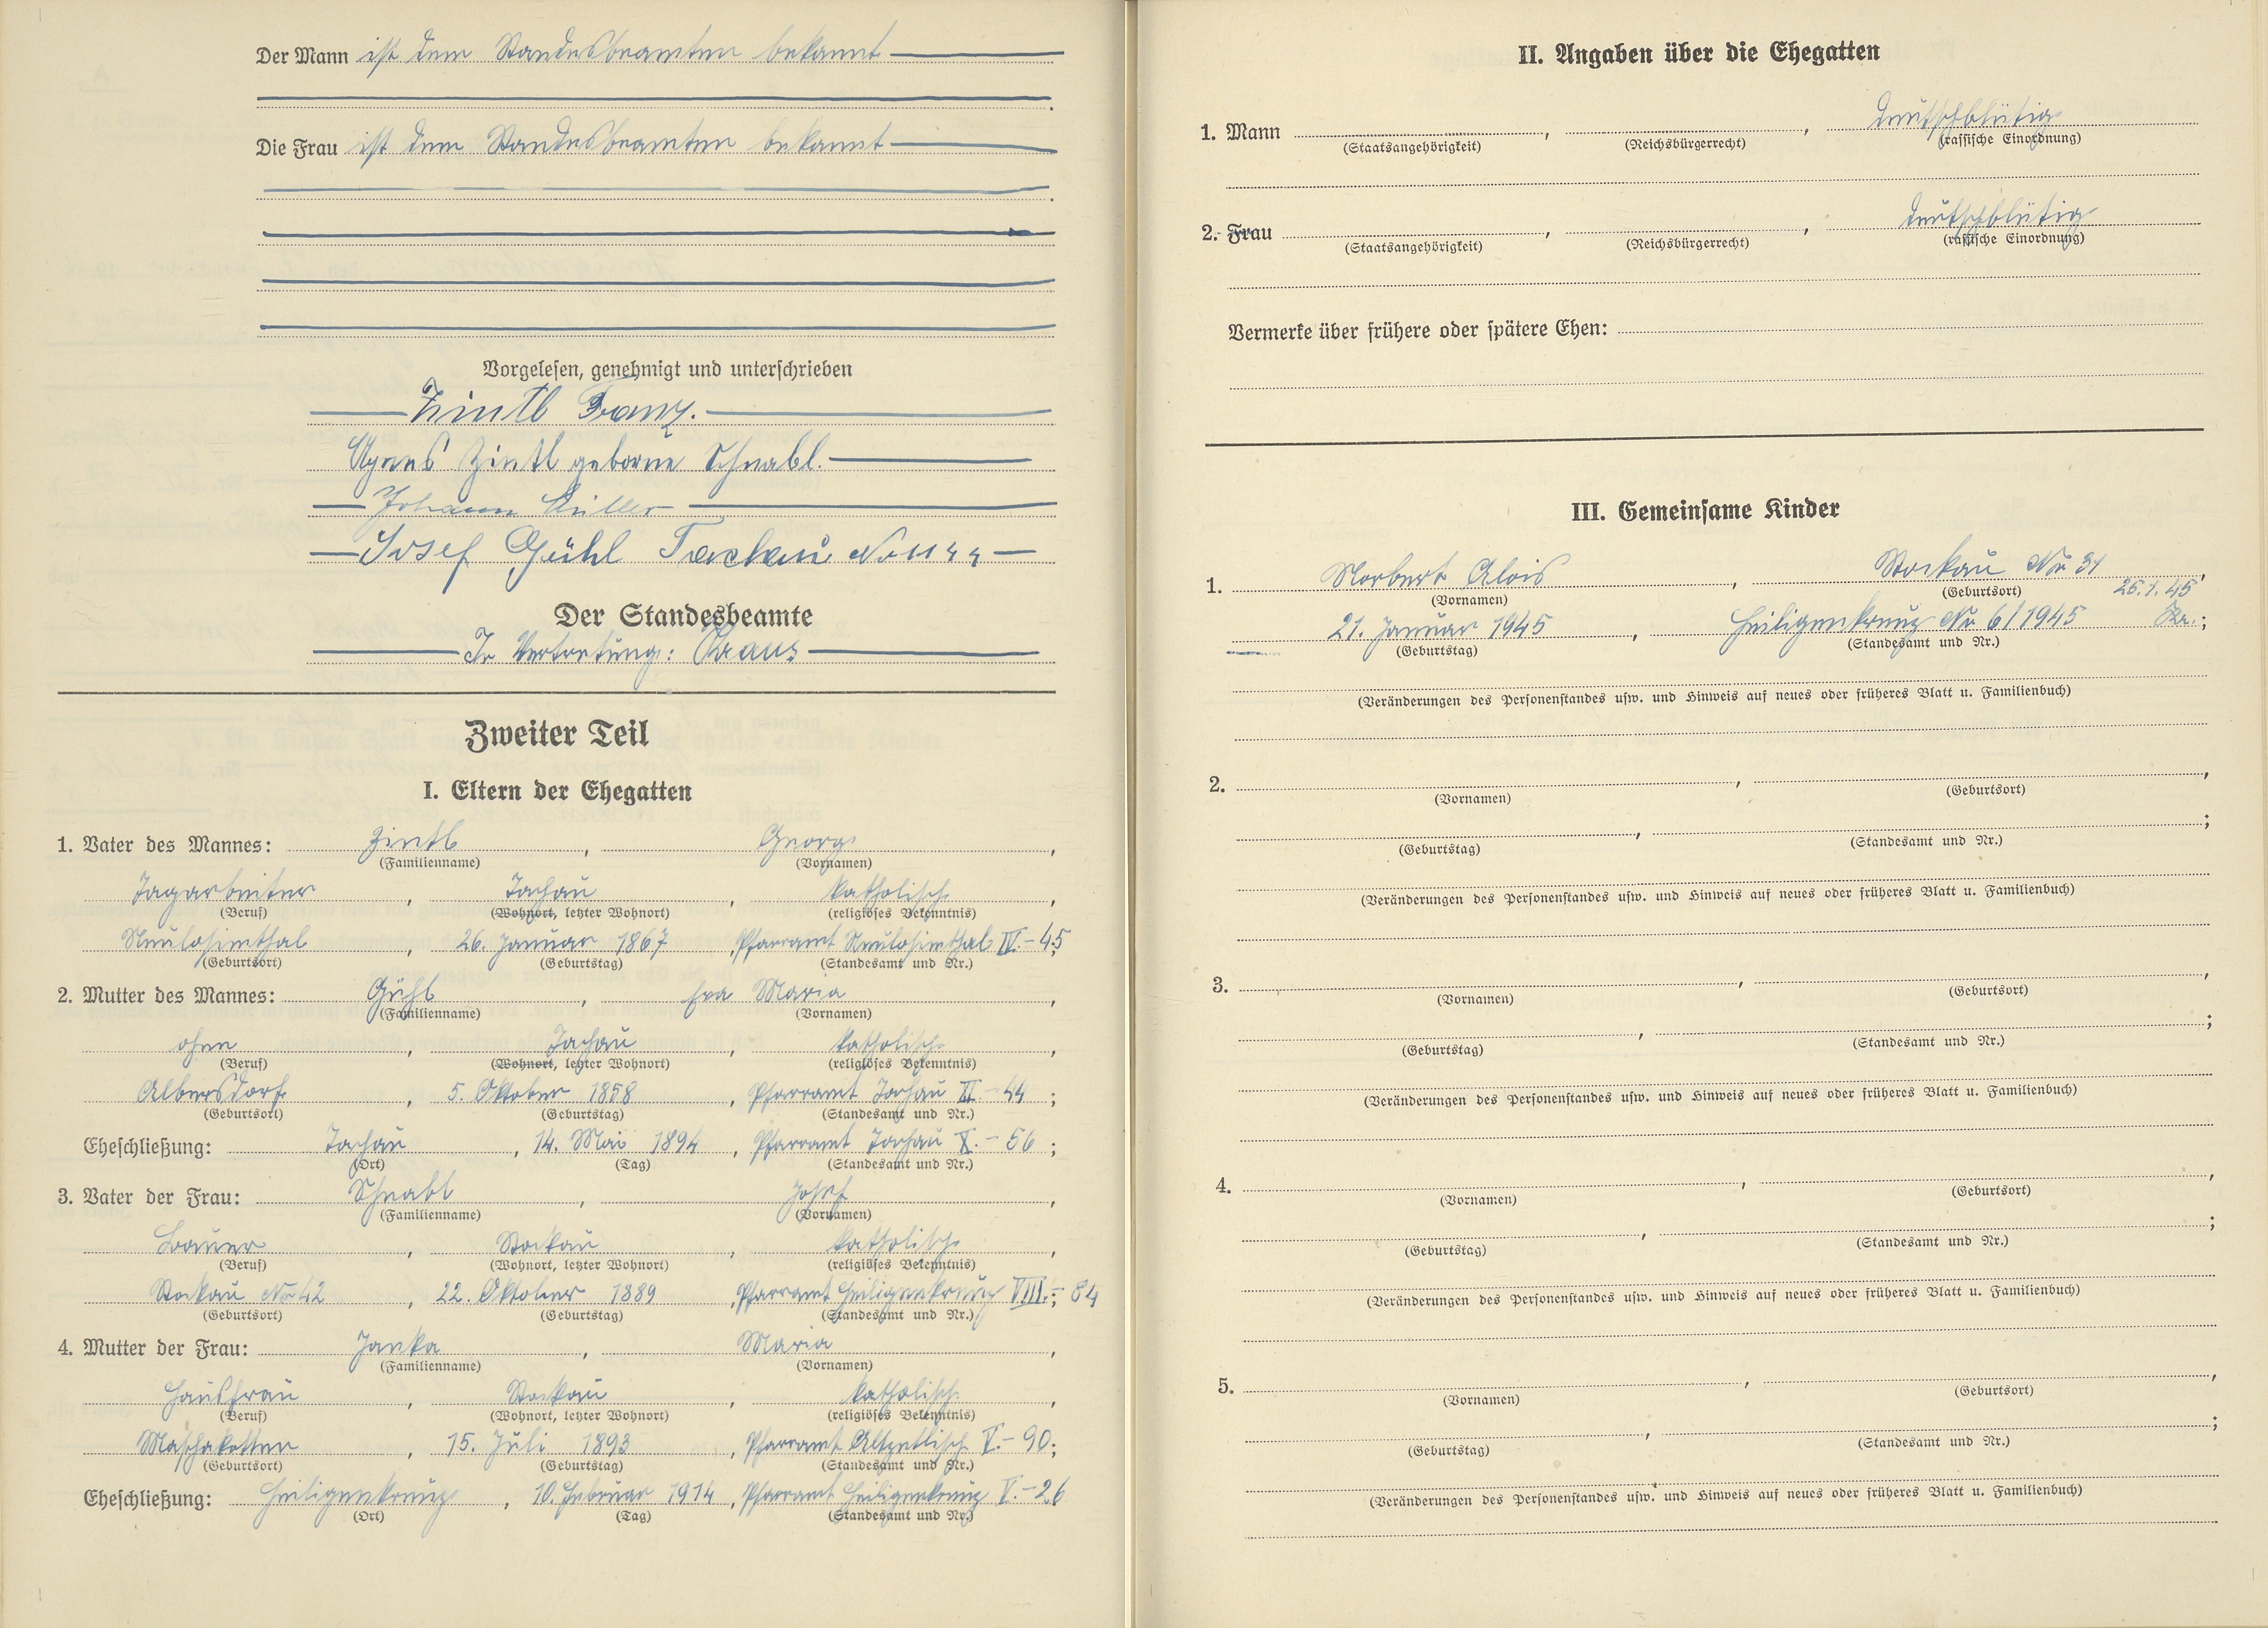 Der Mann ist dem Standesbeamten bekannt
Die Frau ist dem Standesbeamten bekannt
Vorgelesen, genehmigt und unterschrieben
Zintl Franz.
Agnes Zintl geborne Schnabl.
Johann Müller
Josef Gühl Tachau No 1144
Der Standesbeamte
In Vertretung: Kraus
Zweiter Teil
I. Eltern der Ehegatten
1. Vater des Mannes: Zintl, Georg,
(Familienname) (Vornamen)
Tagarbeiter, Tachau, katholisch,
(Beruf) (Wohnort, letzter Wohnort) (religiöses Bekenntnis)
Neulosimthal, 26. Januar 1867, Pfarramt Neulosimthal IV.-45;
(Geburtsort) (Geburtstag) (Standesamt und Nr.)
2. Mutter des Mannes: Gühl, Eva Maria,
(Familienname) (Vornamen)
ohne, Tachau, katholisch,
(Beruf) (Wohnort, letzter Wohnort) (religiöses Bekenntnis)
Albersdorf, 5. Oktober 1858, Pfarramt Tachau II.-44;
(Geburtsort) (Geburtstag) (Standesamt und Nr.)
Eheschließung: Tachau, 14. Mai 1894, Pfarramt Tachau X.-56;
(Ort) (Tag) (Standesamt und Nr.)
3. Vater der Frau: Schnabl, Josef,
(Familienname) (Vornamen)
Bauer, Stockau, katholisch,
(Beruf) (Wohnort, letzter Wohnort) (religiöses Bekenntnis)
Stockau No 42, 22. Oktober 1889, Pfarramt Heiligenkreuz VIII.-84;
(Geburtsort) (Geburtstag) (Standesamt und Nr.)
4. Mutter der Frau: Janka, Maria,
(Familienname) (Vornamen)
Hausfrau, Stockau, katholisch,
(Beruf) (Wohnort, letzter Wohnort) (religiöses Bekenntnis)
Maschakotten, 15. Juli 1893, Pfarramt Altzetlisch V.-90;
(Geburtsort) (Geburtstag) (Standesamt und Nr.)
Eheschließung: Heiligenkreuz, 10. Februar 1914, Pfarramt Heiligenkreuz V.-26
(Ort) (Tag) (Standesamt und Nr.)
II. Angaben über die Ehegatten
1. Mann , , deutschblütig
(Staatsangehörigkeit) (Reichsbürgerrecht) (rassische Einordnung)
2. Frau , , deutschblütig
(Staatsangehörigkeit) (Reichsbürgerrecht) (rassische Einordnung)
Vermerke über frühere oder spätere Ehen:
III. Gemeinsame Kinder
1. Norbert Alois, Stockau No 31,
(Vornamen) (Geburtsort) 26.1.45
21. Januar 1945, Heiligenkreuz No 6/1945 Kr.;
(Geburtstag) (Standesamt und Nr.)
(Veränderungen des Personenstandes usw. und Hinweis auf neues oder früheres Blatt u. Familienbuch)
2. , ,
(Vornamen) (Geburtsort)
, ;
(Geburtstag) (Standesamt und Nr.)
(Veränderungen des Personenstandes usw. und Hinweis auf neues oder früheres Blatt u. Familienbuch)
3. , ,
(Vornamen) (Geburtsort)
, ;
(Geburtstag) (Standesamt und Nr.)
(Veränderungen des Personenstandes usw. und Hinweis auf neues oder früheres Blatt u. Familienbuch)
4. , ,
(Vornamen) (Geburtsort)
, ;
(Geburtstag) (Standesamt und Nr.)
(Veränderungen des Personenstandes usw. und Hinweis auf neues oder früheres Blatt u. Familienbuch)
5. , ,
(Vornamen) (Geburtsort)
, ;
(Geburtstag) (Standesamt und Nr.)
(Veränderungen des Personenstandes usw. und Hinweis auf neues oder früheres Blatt u. Familienbuch)